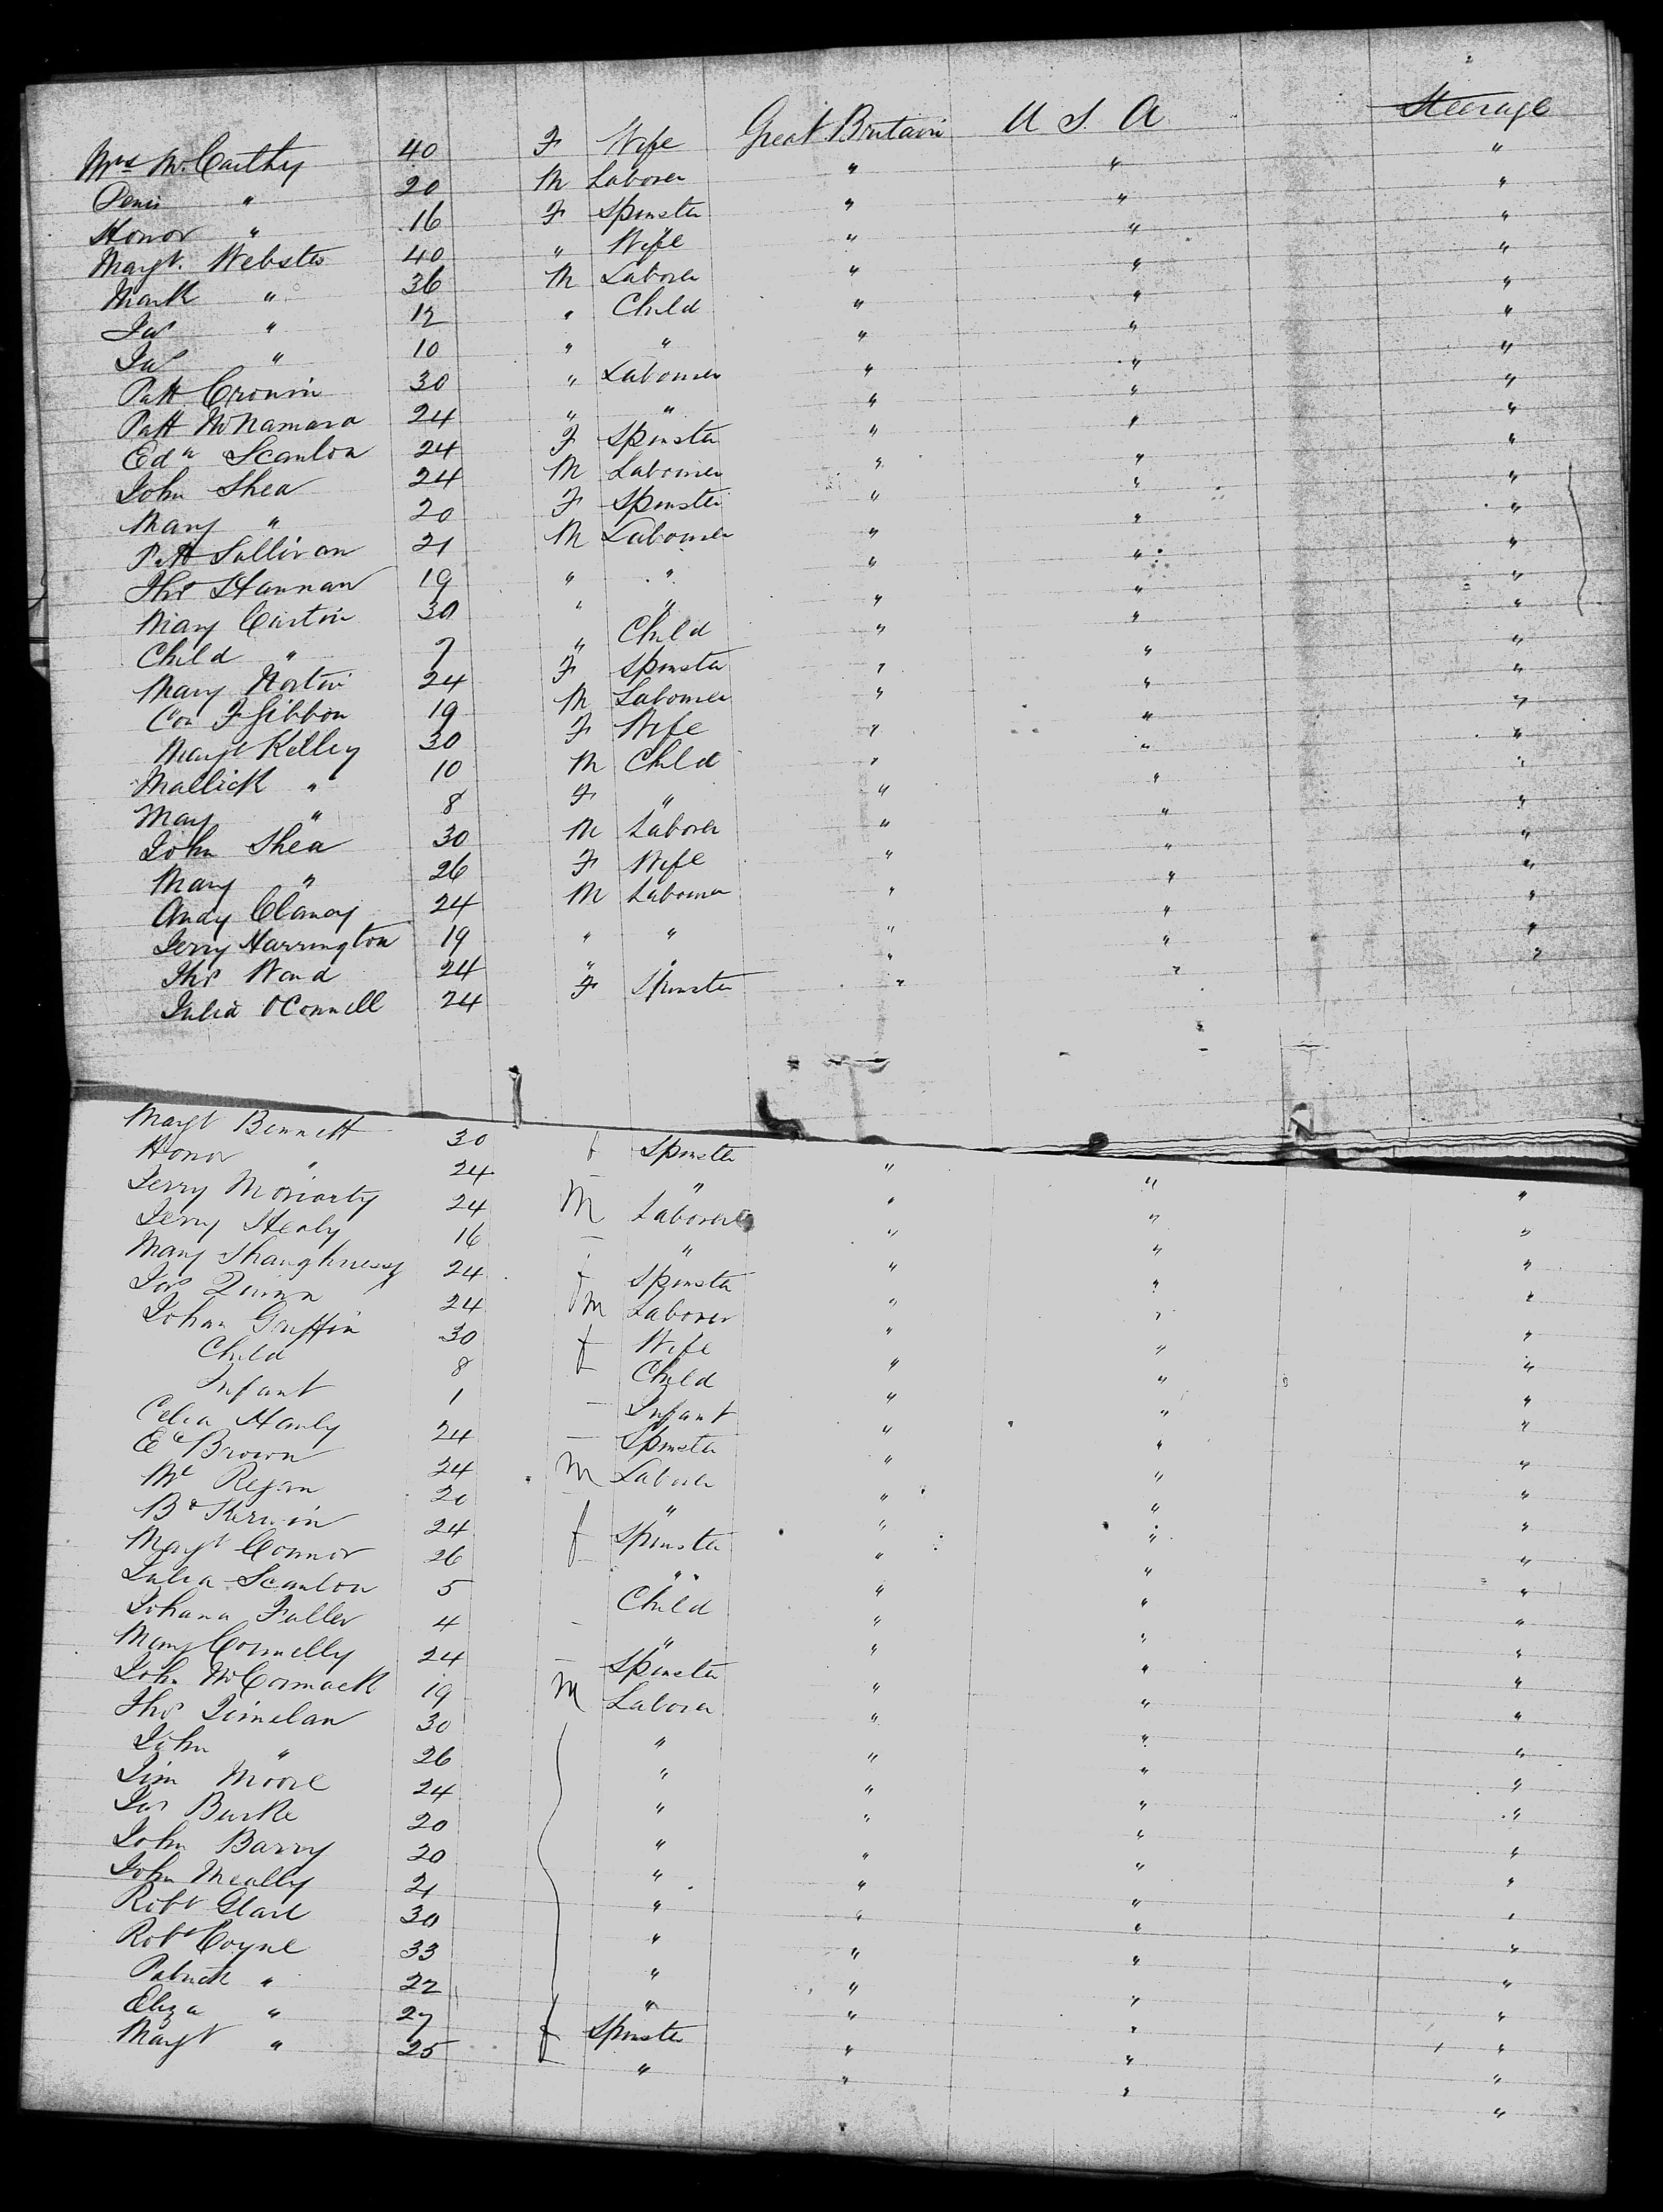 Mrs McCarthy 40 F Wife Great Britain U S A Steerage
Denis " 20 M Laborer " " "
Honor " 16 F Spinster " " "
Margt. Webster 40 " Wife " " "
Mark " 36 M Laborer " " "
Jas " 12 " Child " " "
Jas " 10 " " " " "
Patt Cronin 30 " Labourer " " "
Patt McNamara 24 " " " " "
Edn Scanlon 24 F Spinster " " "
John Shea 24 M Labourer " " "
Mary " 20 F Spinster " " "
Patt Sullivan 21 M Labourer " " "
Thos Hannan 19 " " " " "
Mary Curtin 30 " " " " "
Child " 7 " Child " " "
Mary Nortin 24 F Spinster " " "
Con F Gibbon 19 M Labourer " " "
Margt Kelley 30 F Wife " " "
Mallick " 10 M Child " " "
Mary " 8 F " " " "
John Shea 30 M Laborer " " "
Mary " 26 F Wife " " "
Andy Clancy 24 M Labourer " " "
Jerry Harrington 19 " " " " "
Thos Ward 24 " " " " "
Julia O'Connell 24 F Spinster " " "
Margt Bennett 30 f Spinster " " "
Honor " 24 — " " " "
Jerry Moriarty 24 M Laborer " " "
Jerry Healy 16 — " " " "
Mary Shaughnessy 24 f Spinster " " "
Jas Quinn 24 m Laborer " " "
Johan Griffin 30 f Wife " " "
Child 8 f Child " " "
Infant 1 — Infant " " "
Celia Hanly 24 — Spinster " " "
Brown 24 m Laborer " " "
Regan 20 — " " " "
Kerwin 24 f Spinster " " "
Margt Connor 26 " " " "
Julia Scanlon 5 Child " " "
Johana Fuller 4 — " " " "
Mary Connelly 24 — Spinster " " "
John McCormack 19 M Laborer " " "
Thos Quinelan 30 " " " "
John " 26 " " " "
Jim Moore 24 " " " "
Jas Burke 20 " " " "
John Barry 20 " " " "
John Meally 21 " " " "
Robt 30 " " " "
Robt Coyne 33 " " " "
Patrick " 22 " " " "
Eliza " 27 f Spinster " " "
Margt " 25 " " " "